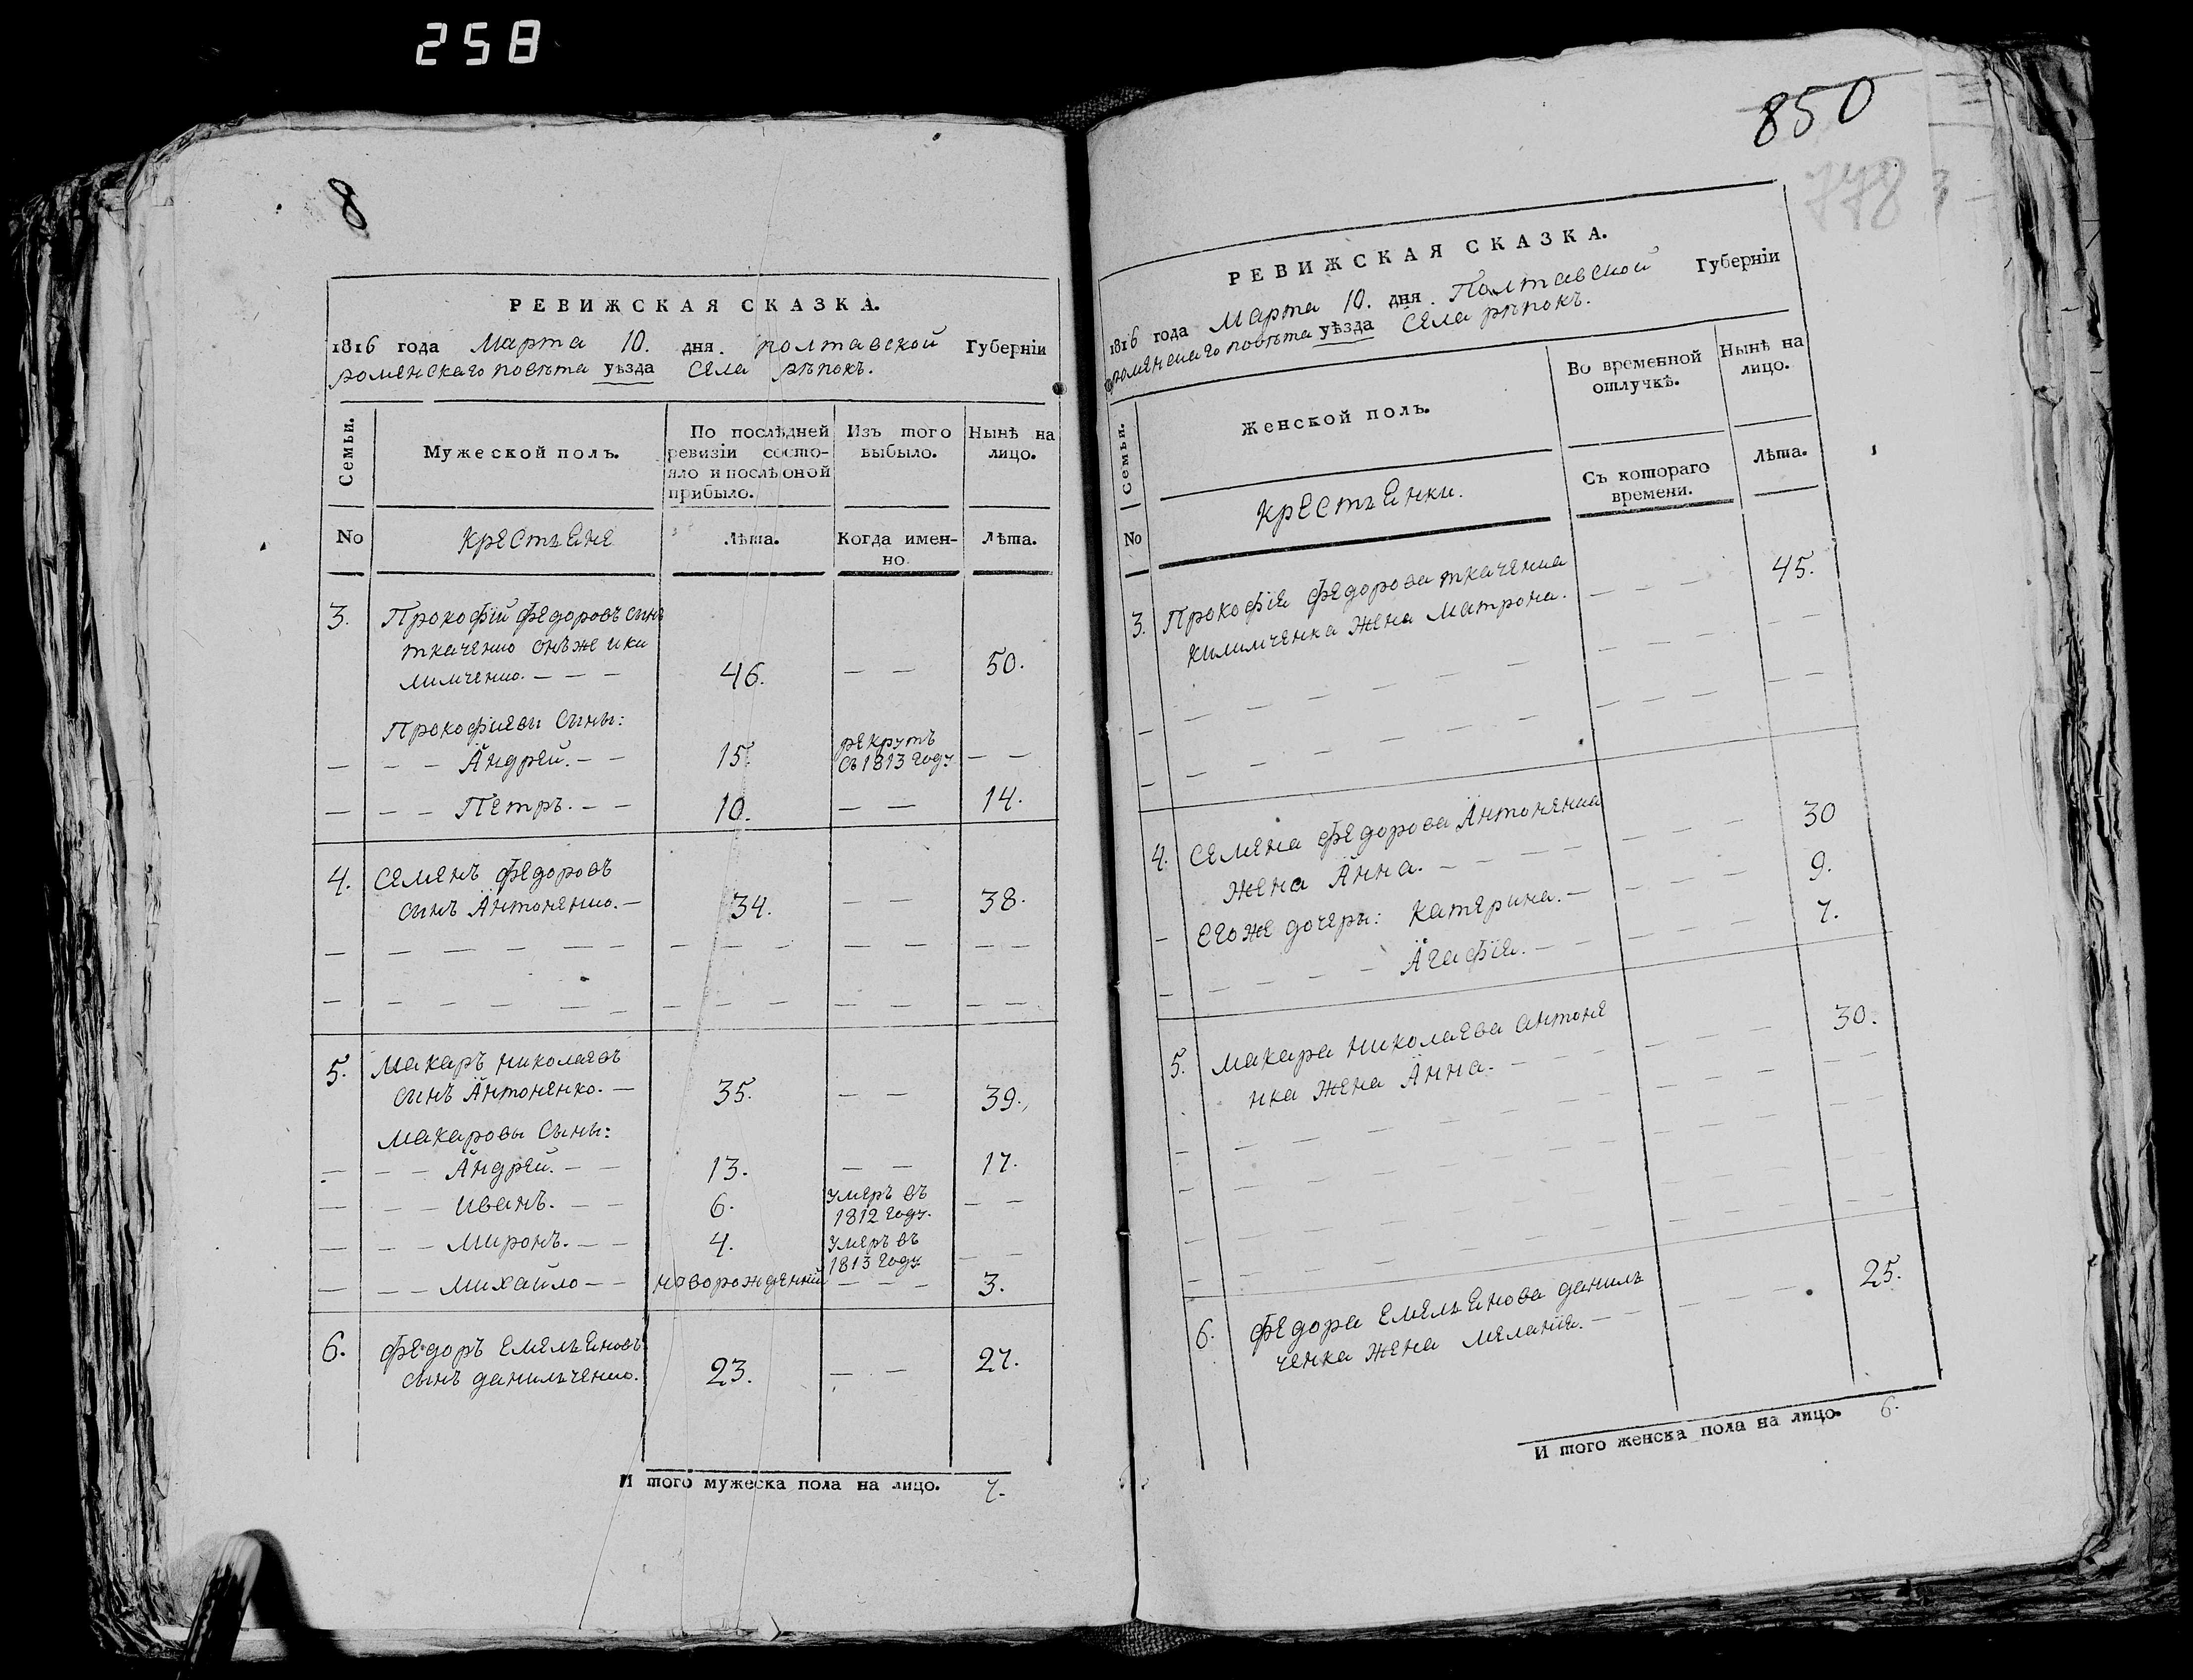 258
8
РЕВИЖСКАЯ СКАЗКА.
1816 года Марта 10. дня. полтавской Губернiи
роменскаго повѣта уѣзда села рѣпокъ.
Семьи.
Мужеской полъ.
По послѣдней ревизiи состояло и послѣ оной прибыло.
Изъ того выбыло.
Нынѣ на лицо.
No
крестьяне
Лѣта.
Когда именно.
Лѣта.
3. Прокофiй федоровъ сынъ
ткаченко онъже и ки
лимченко. — — — 46. — — 50.
Прокофiевы сыны:
— — — Андрей. — — 15. рекрутъ съ 1813 году — —
— — — Петръ. — — 10. — — 14.
4. Семенъ федоровъ
сынъ Антоненко. — 34. — — 38.
5. Макаръ николаевъ
сынъ Антоненко. — 35. — — 39.
Макаровы сыны:
— — — Андрей. — — 13. — — 17.
— — — иванъ. — — 6. умеръ въ 1812 году. — —
— — — миронъ. — — 4. умеръ въ 1813 году — —
— — — михайло — — новорожденнiй — — — 3.
6. федоръ емельяновъ
сынъ данильченко. 23. — — 27.
И того мужеска пола на лицо. 7.
850
778
РЕВИЖСКАЯ СКАЗКА.
1816 года Марта 10. дня. Полтавской Губернiи
роменскаго повѣта уѣзда села рѣпокъ.
Семьи.
Женской полъ.
Во временной отлучкѣ.
Нынѣ на лицо.
No
крестьянки.
Съ котораго времени.
Лѣта.
3. Прокофiя федорова ткаченка — — — 45.
килимченка жена Матрона.
4. Семена федорова Антоненка
жена Анна. — — — — 30
его же дочеры: катерина. — 9.
— — — — Агафiя. — — 7.
5. Макара николаева антоне
нка жена Анна. — — — — 30.
6. федора емельянова даниль
ченка жена меланiя. — — — — 25.
И того женска пола на лицо. 6.